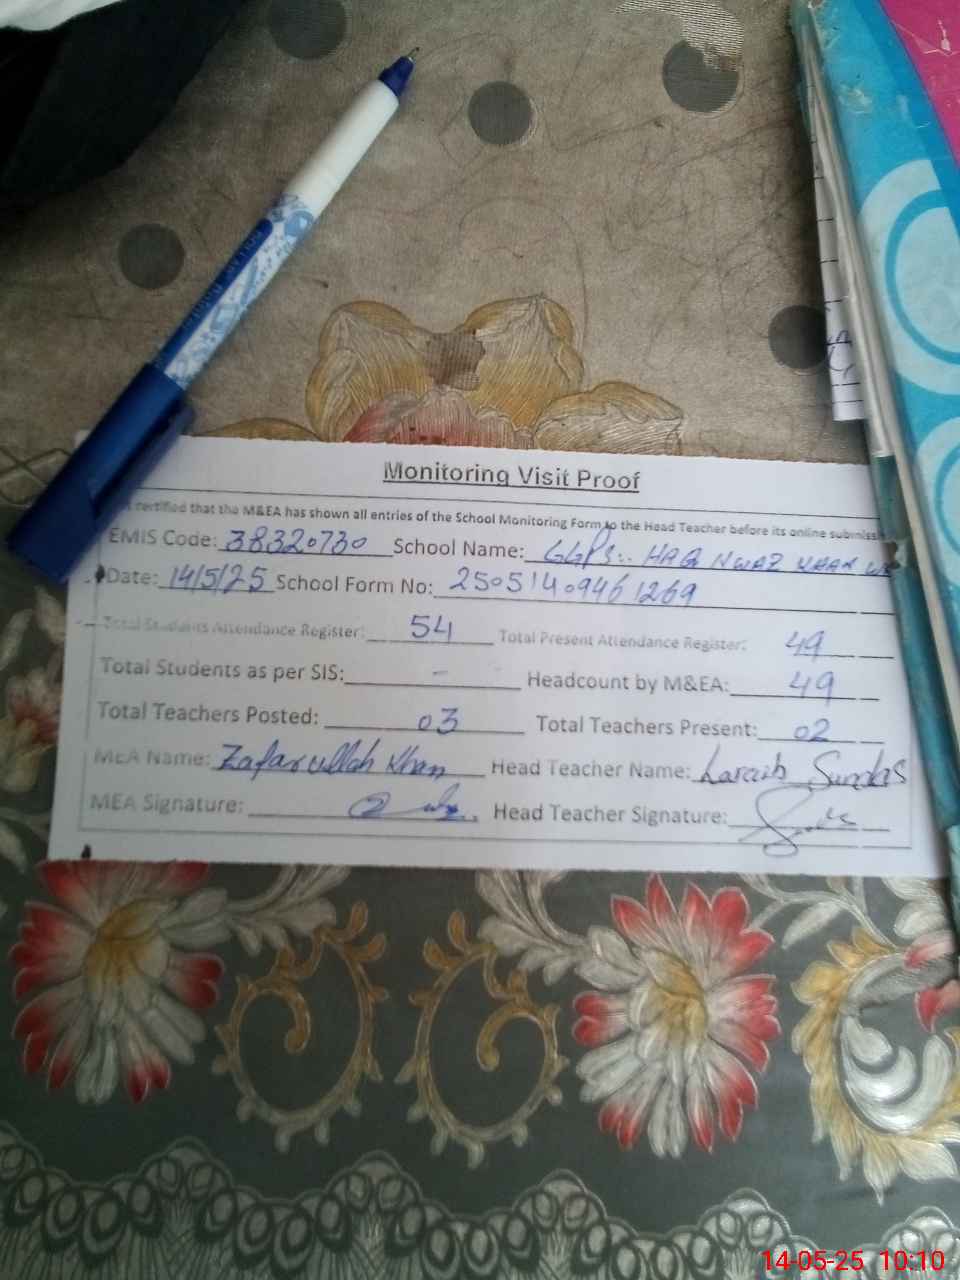 Monitoring Visit Proof
certified that the M&EA has shown all entries of the School Monitoring Form to the Head Teacher before its online submiss
EMIS Code: 38320730 School Name: GGPS.. HAQ NWAZ KHAN
Date: 14/5/25 School Form No: 2505140946 1269
Total Students Attendance Register: 54 Total Present Attendance Register: 49
Total Students as per SIS: - Headcount by M&EA: 49
Total Teachers Posted: 03 Total Teachers Present: 02
MEA Name: Zafarullah Khan Head Teacher Name: Laraib Sundas
MEA Signature: Head Teacher Signature:
14-05-25 10:10